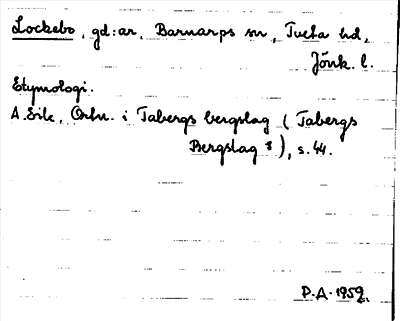 Lockebo, gd:ar, Barnarps sn, Tveta hd,
Jönk. l.
Etymologi.
A. Eik, Ortn. i Tabergs bergslag (Tabergs
Bergslag 8), s. 44.
P.A. 1959.